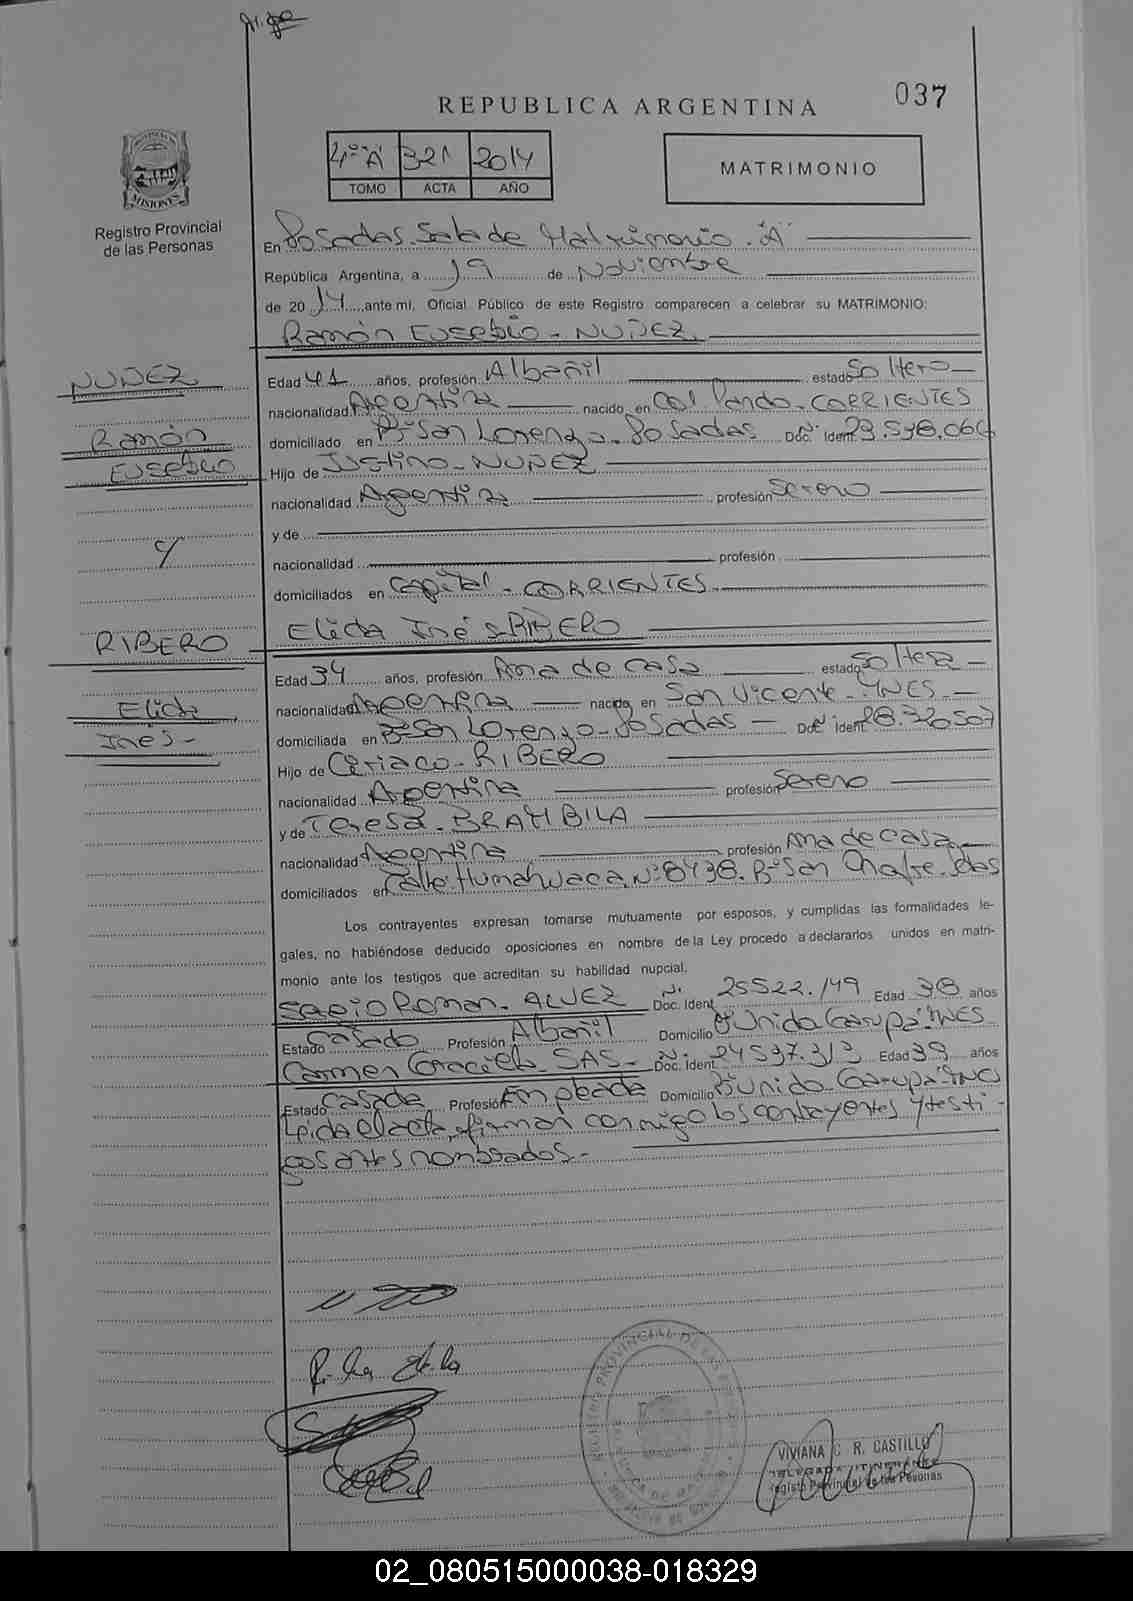 037
REPUBLICA ARGENTINA
4º "A" 321 2014
TOMO ACTA AÑO
MATRIMONIO
MISIONES
Registro Provincial
de las Personas
En Posadas. Sala de Matrimonio. "A"
República Argentina, a 19 de Noviembre
de 2014, ante mí, Oficial Público de este Registro comparecen a celebrar su MATRIMONIO:
Ramón Eusebio - NUÑEZ
NUÑEZ
Ramón
Eusebio
y
RIBERO
Elida
Inés -
Edad 41 años, profesión Albañil estado Soltero
nacionalidad Argentina nacido en Col Pando - CORRIENTES
domiciliado en Bº San Lorenzo - Posadas Doc. Ident. 23.538.064
Hijo de Justino - NUÑEZ
nacionalidad Argentina profesión Sereno
y de
nacionalidad profesión
domiciliados en Capital - CORRIENTES
Elida Inés RIBERO
Edad 34 años, profesión Ama de casa estado Soltera
nacionalidad Argentina nacida en San Vicente - MNES
domiciliada en Bº San Lorenzo - Posadas Doc. Ident. 28.320.507
Hijo de Ciriaco - RIBERO
nacionalidad Argentina profesión Sereno
y de Teresa - BRAMBILA
nacionalidad Argentina profesión Ama de casa
domiciliados en Calle Humahuaca Nº 8438. Bº San Onofre. Pdas
Los contrayentes expresan tomarse mutuamente por esposos, y cumplidas las formalidades le-
gales, no habiéndose deducido oposiciones en nombre de la Ley procedo a declararlos unidos en matri-
monio ante los testigos que acreditan su habilidad nupcial.
Sergio Roman - ALVEZ Doc. Ident. 25522.149 Edad 38 años
Estado Casado Profesión Albañil Domicilio Bº Unido Garupá MNES
Carmen Graciela - SAS - Doc. Ident. 24597.313 Edad 39 años
Estado Casada Profesión Empleada Domicilio Bº Unido - Garupá MNES
Leida el acta, firman conmigo los contrayentes y testi-
gos antes nombrados. -
REGISTRO PROVINCIAL DE LAS
VIVIANA C. R. CASTILLO
DELEGADA ITINERANTE
Registro Provincial de las Personas
02_080515000038-018329